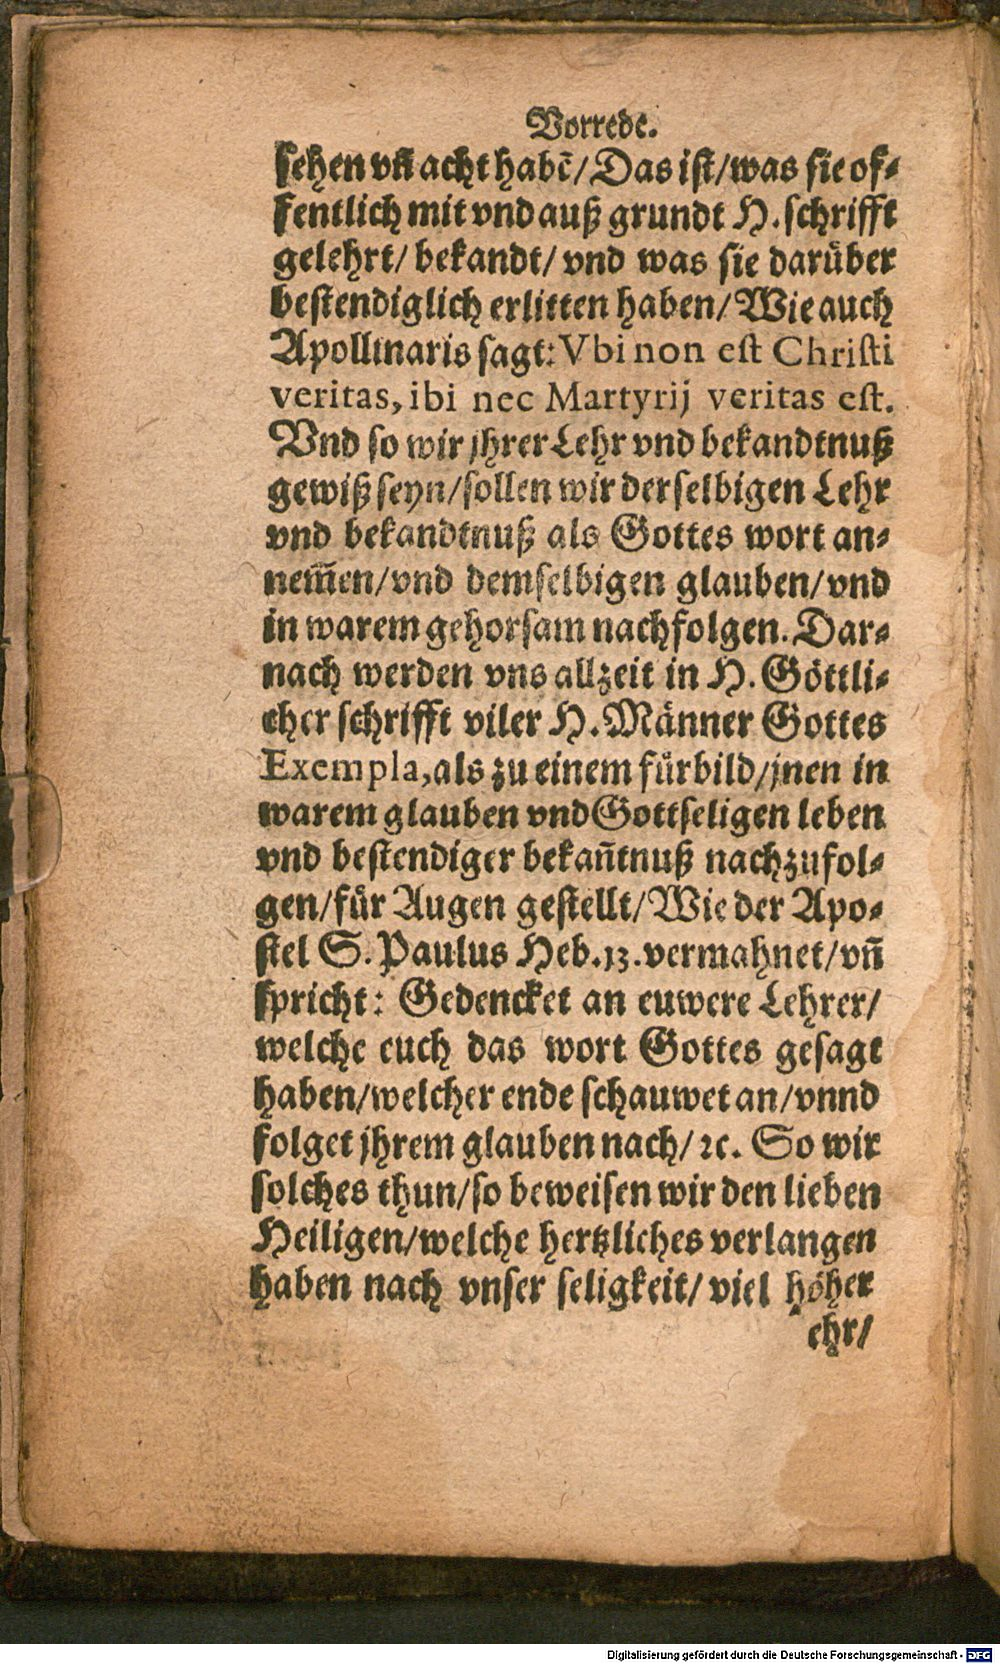 Vorrede.
sehen vñ acht habē/ Das ist/ was sie of⸗
fentlich mit vnd auß grundt H. schrifft
gelehrt/ bekandt/ vnd was sie darüber
bestendiglich erlitten haben/ Wie auch
Apollinaris sagt: Vbi non est Christi
veritas, ibi nec Martyrij veritas est.
Vnd so wir jhrer Lehr vnd bekandtnuß
gewiß seyn/ sollen wir derselbigen Lehr
vnd bekandtnuß als Gottes wort an⸗
nem̃en/ vnd demselbigen glauben/ vnd
in warem gehorsam nachfolgen. Dar⸗
nach werden vns allzeit in H. Göttli⸗
cher schrifft viler H. Männer Gottes
Exempla, als zu einem fürbild/ jnen in
warem glauben vnd Gottseligen leben
vnd bestendiger bekañtnuß nachzufol⸗
gen/ für Augen gestellt/ Wie der Apo⸗
stel S. Paulus Heb. 13. vermahnet/ vñ
spricht: Gedencket an euwere Lehrer/
welche euch das wort Gottes gesagt
haben/ welcher ende schauwet an/ vnnd
folget jhrem glauben nach/ ꝛc. So wir
solches thun/ so beweisen wir den lieben
Heiligen/ welche hertzliches verlangen
haben nach vnser seligkeit/ viel höher
ehr/
Digitalisierung gefördert durch die Deutsche Forschungsgemeinschaft - DFG